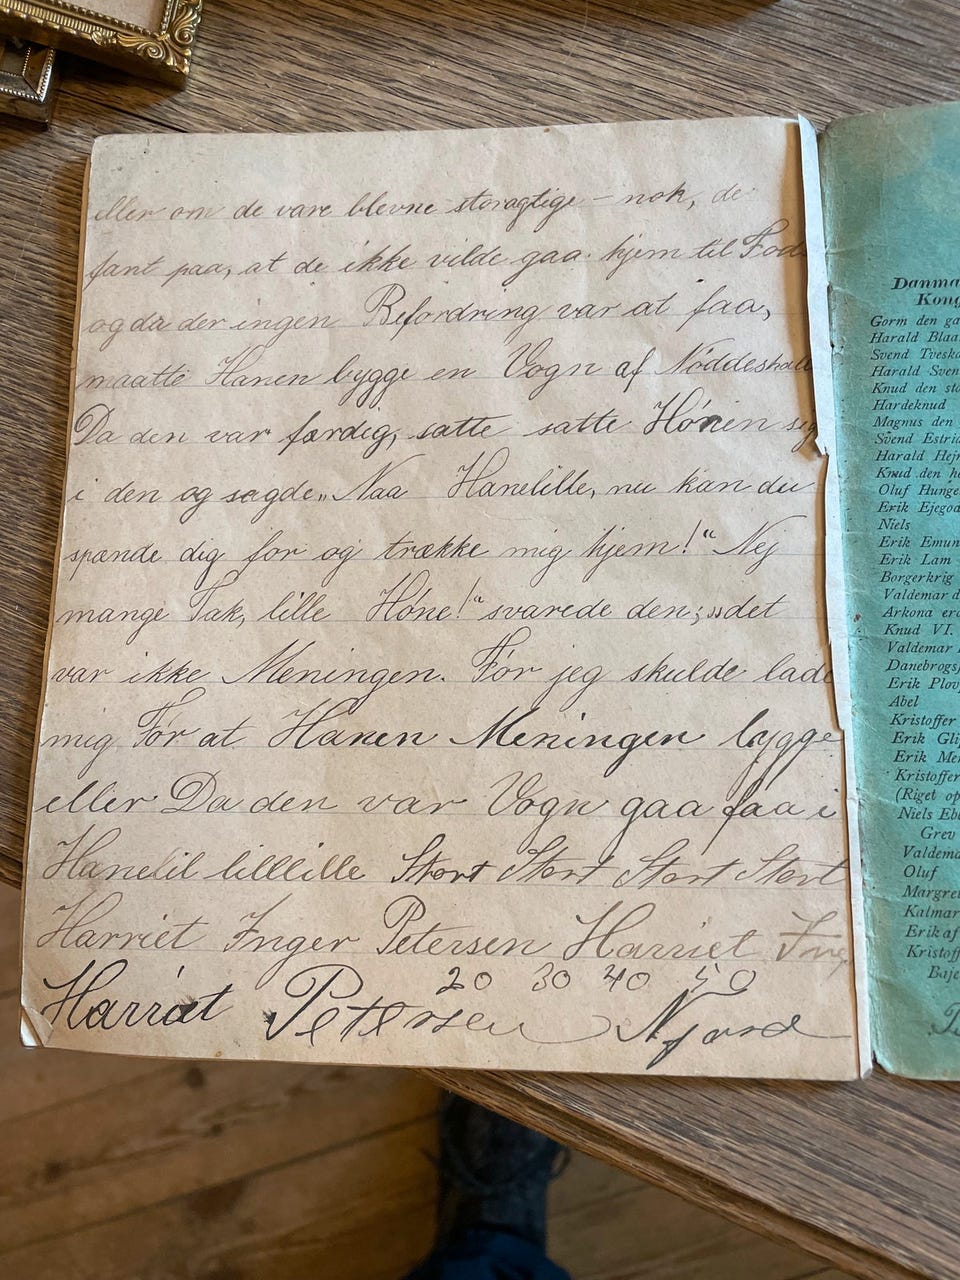 eller om de vare blevne storagtige – nok, de
fant paa, at de ikke vilde gaa hjem til Fods
og da der ingen Befordring var at faa,
maatte Hanen bygge en Vogn af Nöddeskall
Da den var færdig, satte satte Hönen sig
i den og sagde „Naa Hanelille, nu kan du
spænde dig for og trække mig hjem!“ Nej
mange Tak, lille Höne!“ svarede den; „det
var ikke Meningen. För jeg skulde lade
mig För at Hanen Meningen bygge
eller Da den var Vogn gaa faa i
Hanelil lillelille Stort Stort Stort Stort
Harriet Inger Petersen Harriet Ing
20 30 40 50
Harriet Petersen
Danma
Kong
Gorm den ga
Harald Blaa
Svend Tveskæ
Harald Sven
Knud den sto
Hardeknud
Magnus den
Svend Estrid
Harald Hejn
Knud den he
Oluf Hunge
Erik Ejegod
Niels
Erik Emun
Erik Lam
Borgerkrig
Valdemar d
Arkona ero
Knud VI.
Valdemar
Danebrogs
Erik Plov
Abel
Kristoffer
Erik Gli
Erik Me
Kristoffer
(Riget op
Niels Ebb
Grev
Valdema
Oluf
Margret
Kalmar
Erik af
Kristoff
Baje